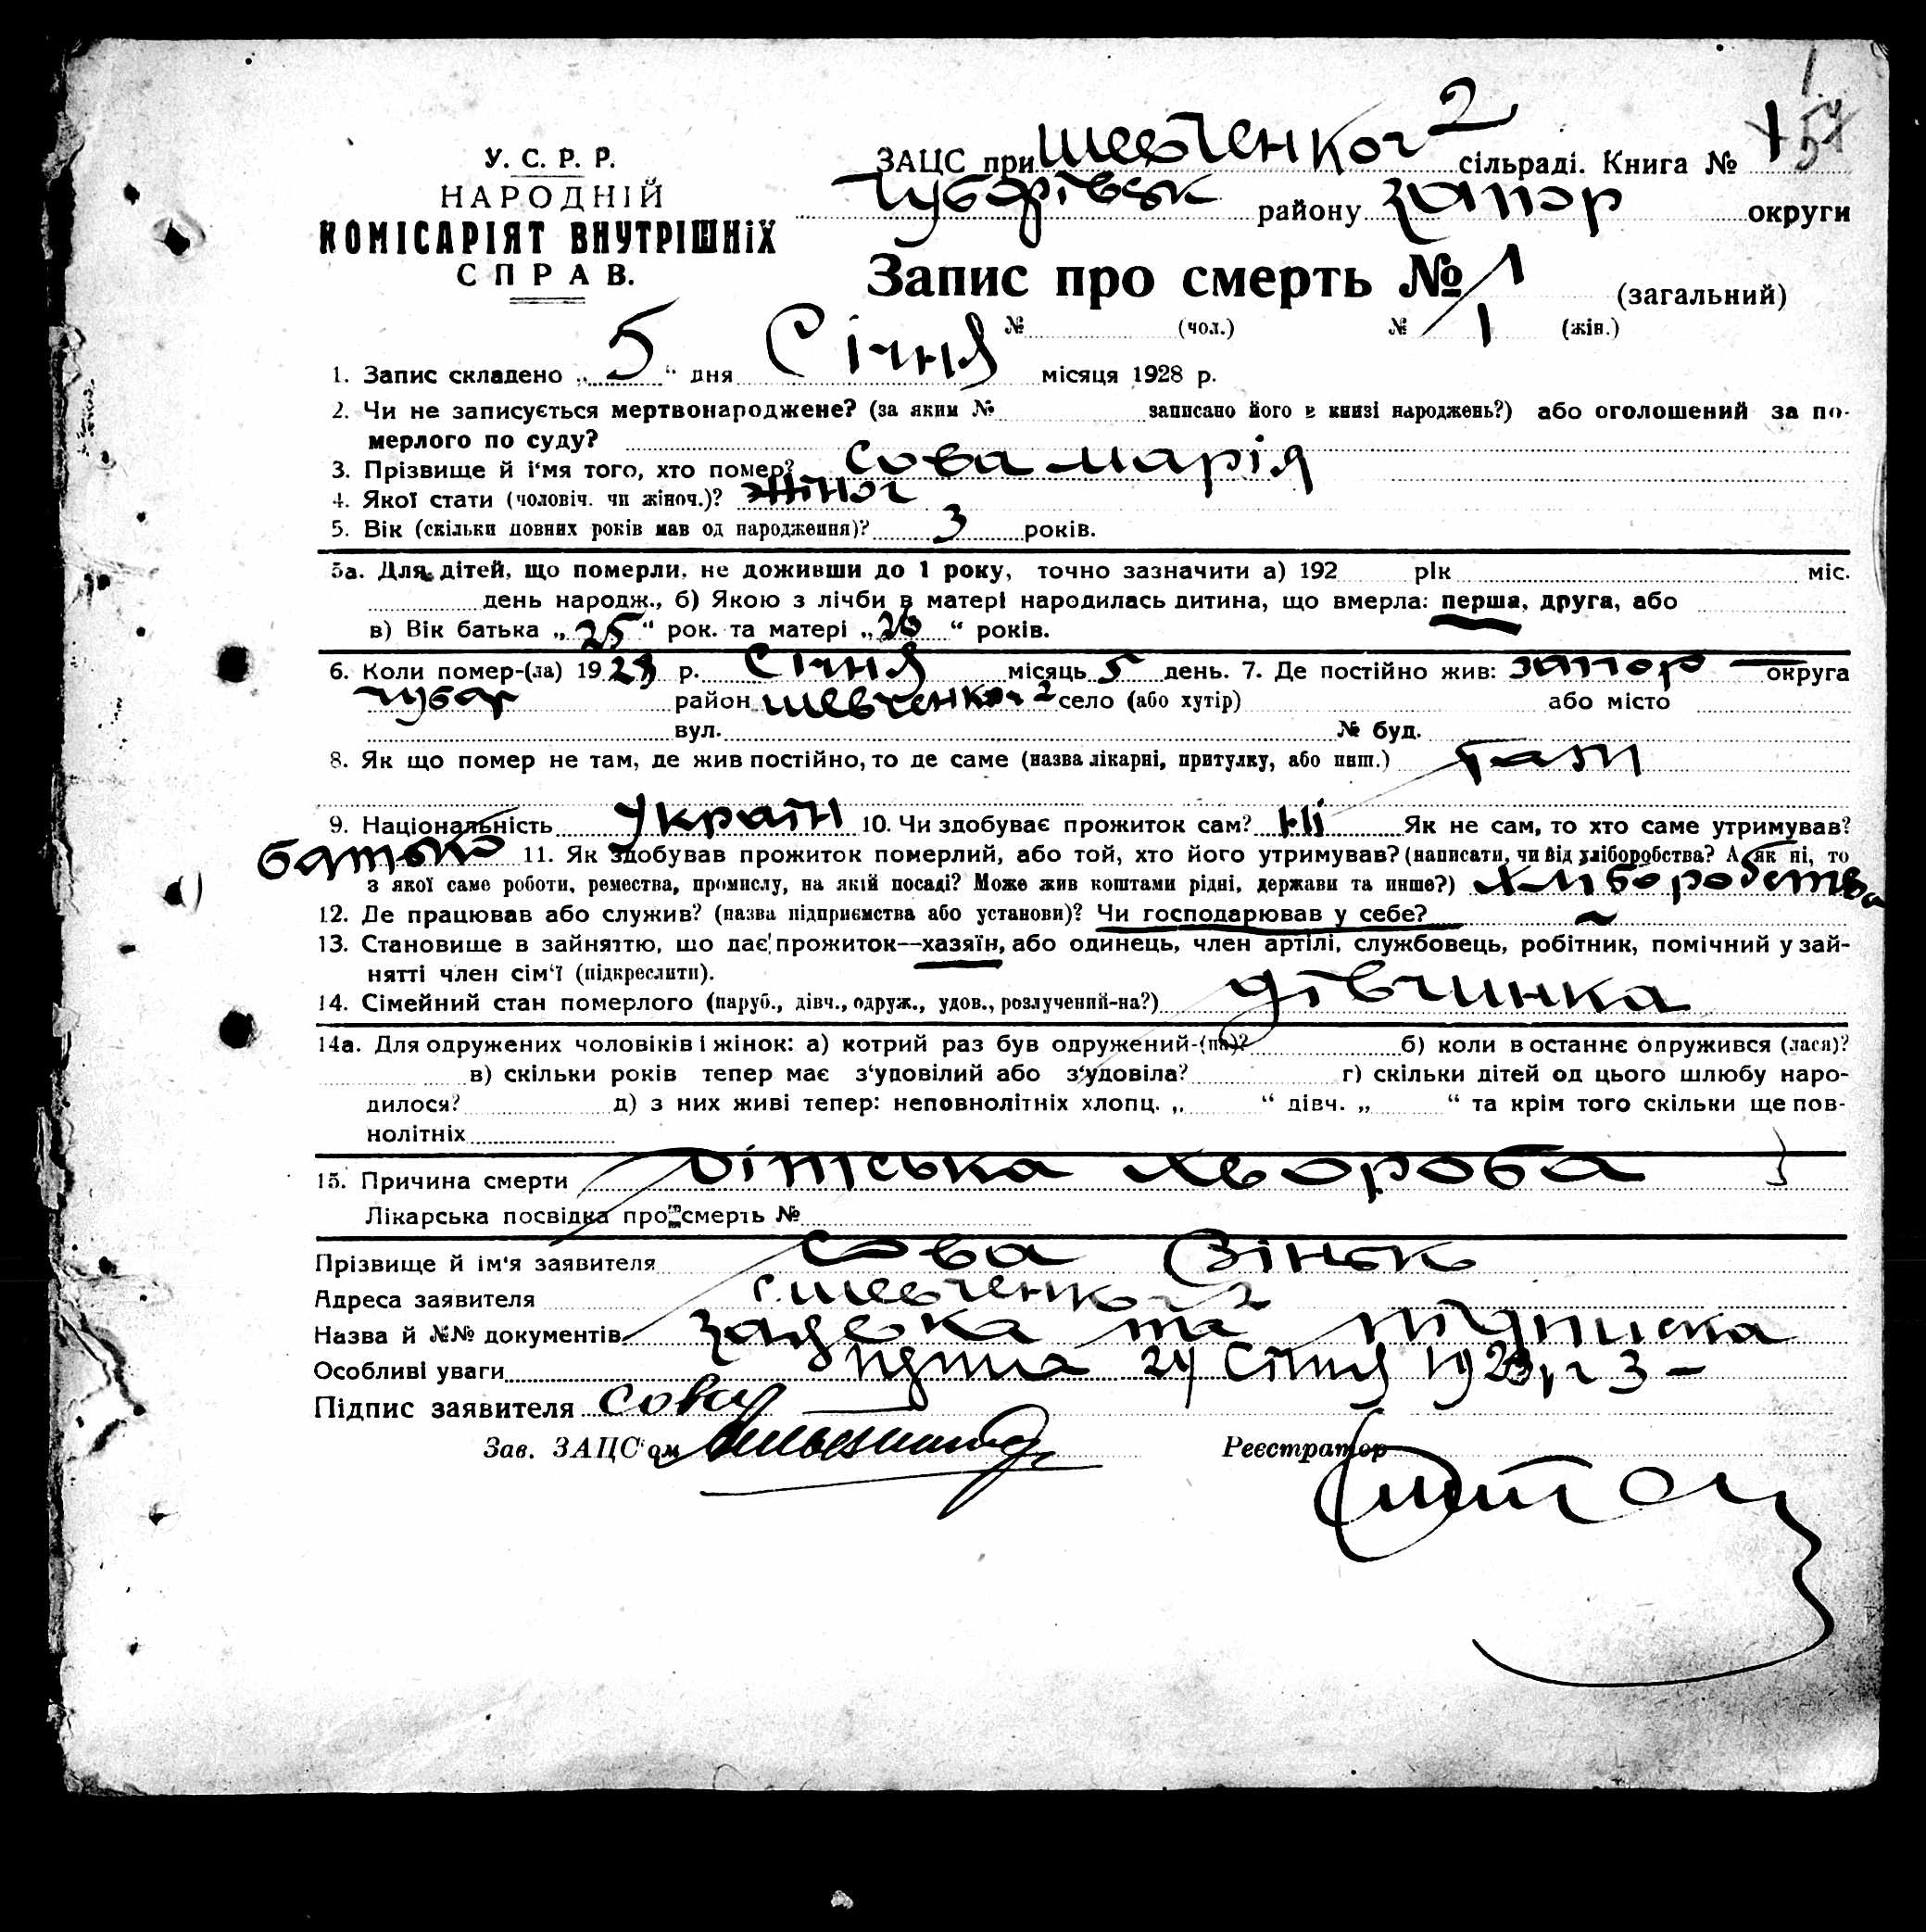 У. С. Р. Р.
НАРОДНІЙ
КОМІСАРІЯТ ВНУТРІШНІХ
СПРАВ.
ЗАЦС при Шевченког 2 сільраді. Книга №
Чубарівськ району Запор округи
Запис про смерть № 1 (загальний)
№ (чол.) № 1 (жін.)
1. Запис складено „ 5 “ дня Січня місяця 1928 р.
2. Чи не записується мертвонароджене? (за яким № записано його в книзі народжень?) або оголошений за по-
мерлого по суду?
3. Прізвище й і'мя того, хто помер? Сова Марія
4. Якої стати (чоловіч. чи жіноч.)? жіноч
5. Вік (скільки повних років мав од народження)? 3 років.
5а. Для дітей, що померли, не доживши до 1 року, точно зазначити а) 192 рік міс.
день народж., б) Якою з лічби в матері народилась дитина, що вмерла: перша, друга, або
в) Вік батька „ 25 “ рок. та матері „ 26 “ років.
6. Коли помер-(ла) 1928 р. Січня місяць 5 день. 7. Де постійно жив: Запор округа
Чубар район Шевченког 2 село (або хутір) або місто
вул. № буд.
8. Як що помер не там, де жив постійно, то де саме (назва лікарні, притулку, або инш.)
9. Національність Україн 10. Чи здобуває прожиток сам? Ні Як не сам, то хто саме утримував?
батько 11. Як здобував прожиток померлий, або той, хто його утримував? (написати, чи від хліборобства? А як ні, то
з якої саме роботи, ремества, промислу, на якій посаді? Може жив коштами рідні, держави та инше?) Хліборобства
12. Де працював або служив? (назва підприємства або установи)? Чи господарював у себе?
13. Становище в зайняттю, що дає прожиток—хазяїн, або одинець, член артілі, службовець, робітник, помічний у зай-
нятті член сім'ї (підкреслити).
14. Сімейний стан померлого (паруб., дівч., одруж., удов., розлучений-на?) дівчинка
14а. Для одружених чоловіків і жінок: а) котрий раз був одружений-(на)? б) коли в останнє одружився (лася)?
в) скільки років тепер має з'удовілий або з'удовіла? г) скільки дітей од цього шлюбу наро-
дилося? д) з них живі тепер: неповнолітніх хлопц. „ “ дівч. „ “ та крім того скільки ще пов-
нолітніх
15. Причина смерти Дітська хвороба
Лікарська посвідка про смерть №
Прізвище й ім'я заявителя Сова Зіньк
Адреса заявителя с. Шевченког 2
Назва й №№ документів заявка та підписка
Особливі уваги 24 Січня
Підпис заявителя Сова
Зав. ЗАЦС'ом
Реєстратор